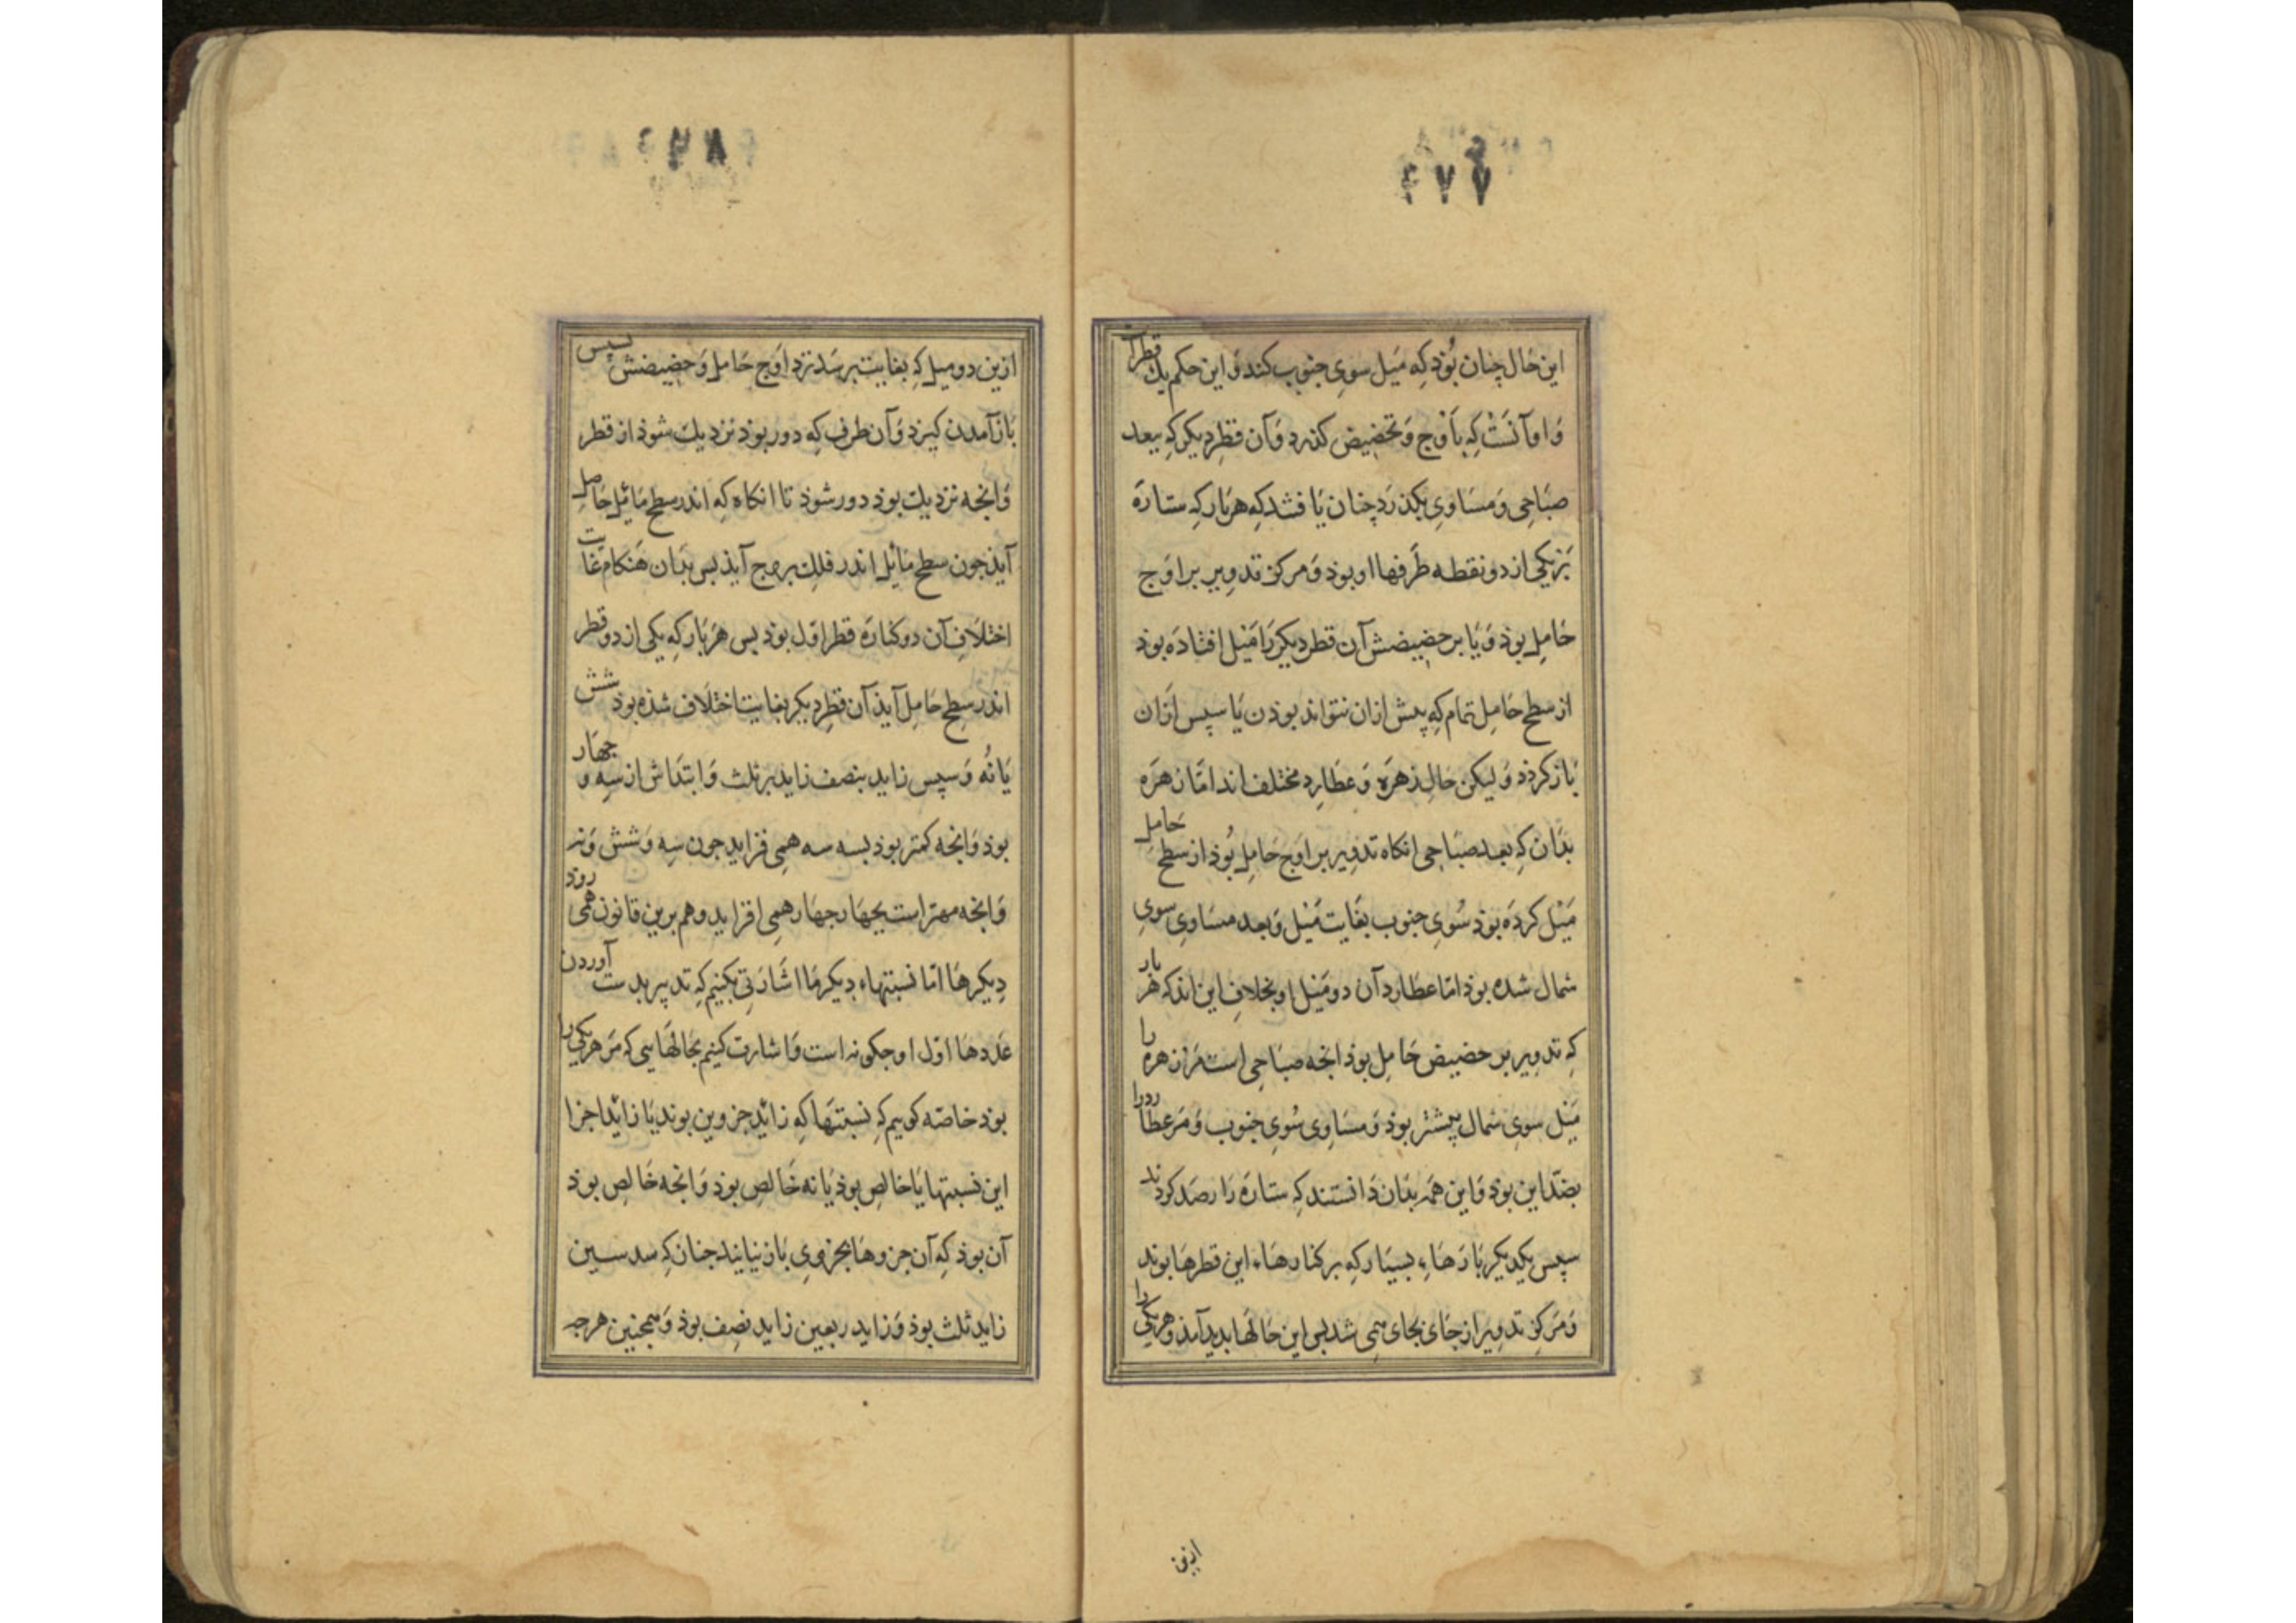 ۴۷۷
این حال چنان بُوَذ کِه مَیل سوی جنوب کند وَ این حکم یك قطر
وَ او آنَسْت کِه بَاَوْج وَ بحضیض کذرد وَ آن قطر دیکر کِه ببعد
صبَاحی وَ مسَاوی بکذرَد چنان یَافتند کِه هر بار کِه ستارَه
بَر یکی از دو نقطه طَرفها او بوذ وَ مرکز تدویر بر اوَج
حَامِل بوذ وَ یَا بر حضیضش آن قطر دیکر رَا مَیْل افتادَه بوذ
از سطح حَامِل تمام کِه پیش ازان نتواند بوذن یَا سپس ازان
بَاز کردذ وَ لیکن حَال زهرَه وَ عطَارد مختلف اند امّا زهرَه
بدَان کِه بعد صبَاحی انکاه تدویر بر اوَج حَامِل بُوذ از سطح حَامِل
مَیْل کردَه بوذ سُوی جنوب بغَایت مَیْل وَ بعد مسَاوی سوی
شمال شده بوذ امّا عطارد آن دو مَیْل او بخلاف این اند که هر بار
کِه تدویر بر حضیض حَامِل بوذ انجه صبَاحی است مَر زهره را
مَیْل سوی شمال بیشتر بوذ وَ مسَاوی سُوی جنوب وَ مَر عطارد را
بضدّ این بوذ وَ این همَه بدَان دَانستند کِه ستارَه رَا رصَد کردند
سپس یکدیکر بَارهَاءِ بسیَار کِه بر کنارهَاءِ این قطرهَا بوند
وَ مَرکز تدویر از جَای بجَای همی شد پس این حَالهَا بدید آمذ و هر یکی را
ازین
ازین دو میل کِه بغایت برسَد نزد اوَج حَامِل وَ حضیضش سپس
بَاز آمدن کیرد وَ آن طرف کِه دور بوذ نزدیك شوذ از قطر
وَ انجه نزدیك بوذ دور شوذ تا انکاه کِه اندر سطح مَائِل حَامِل
آیذ جون سطح مَائِل اندر فلك بروج آیذ پس بدَان هَنکام غایت
اختلَاف آن دو کنارَه قطر اوّل بوذ پس هر بَار کِه یکی از دو قطر
اندر سطح حَامِل آیذ آن قطر دیکر بغایت اختلَاف شذه بوذ شش
یَا نُه وَ سپس زاید بنصف زاید بر ثلث وَ ابتدَاش از سِه و جهَار
بوذ وَ انجه کمتر بوذ بسه سه همی فزاید جون سِه وَ شش وَ نه
وَ انجه مهتر است بجهَار جهَار همی افزاید و هم برین قانون همی روذ
دیکرهَا امّا نسبتهاء دیکر مَا اشَارتی بکنیم کِه تدبیر بدست آوردن
عَددهَا اوّل او جکونه است وَ اشارت کنیم بحَالهَایی که مَر هر یکی را
بوذ خاصّه کوییم کِه نسبتهَا کِه زائِد جزوین بوند یَا زائِد اجزا
این نسبتها یَا خالِص بوذ یَا نه خَالِص بوذ وَ انجه خَالِص بوذ
آن بوذ کِه آن جزوهَا بجزوی بَاز نیایند جنان کِه سدسین
زاید ثلث بوذ وَ زاید ربعین زاید نصف بوذ وَ همجنین هرجه